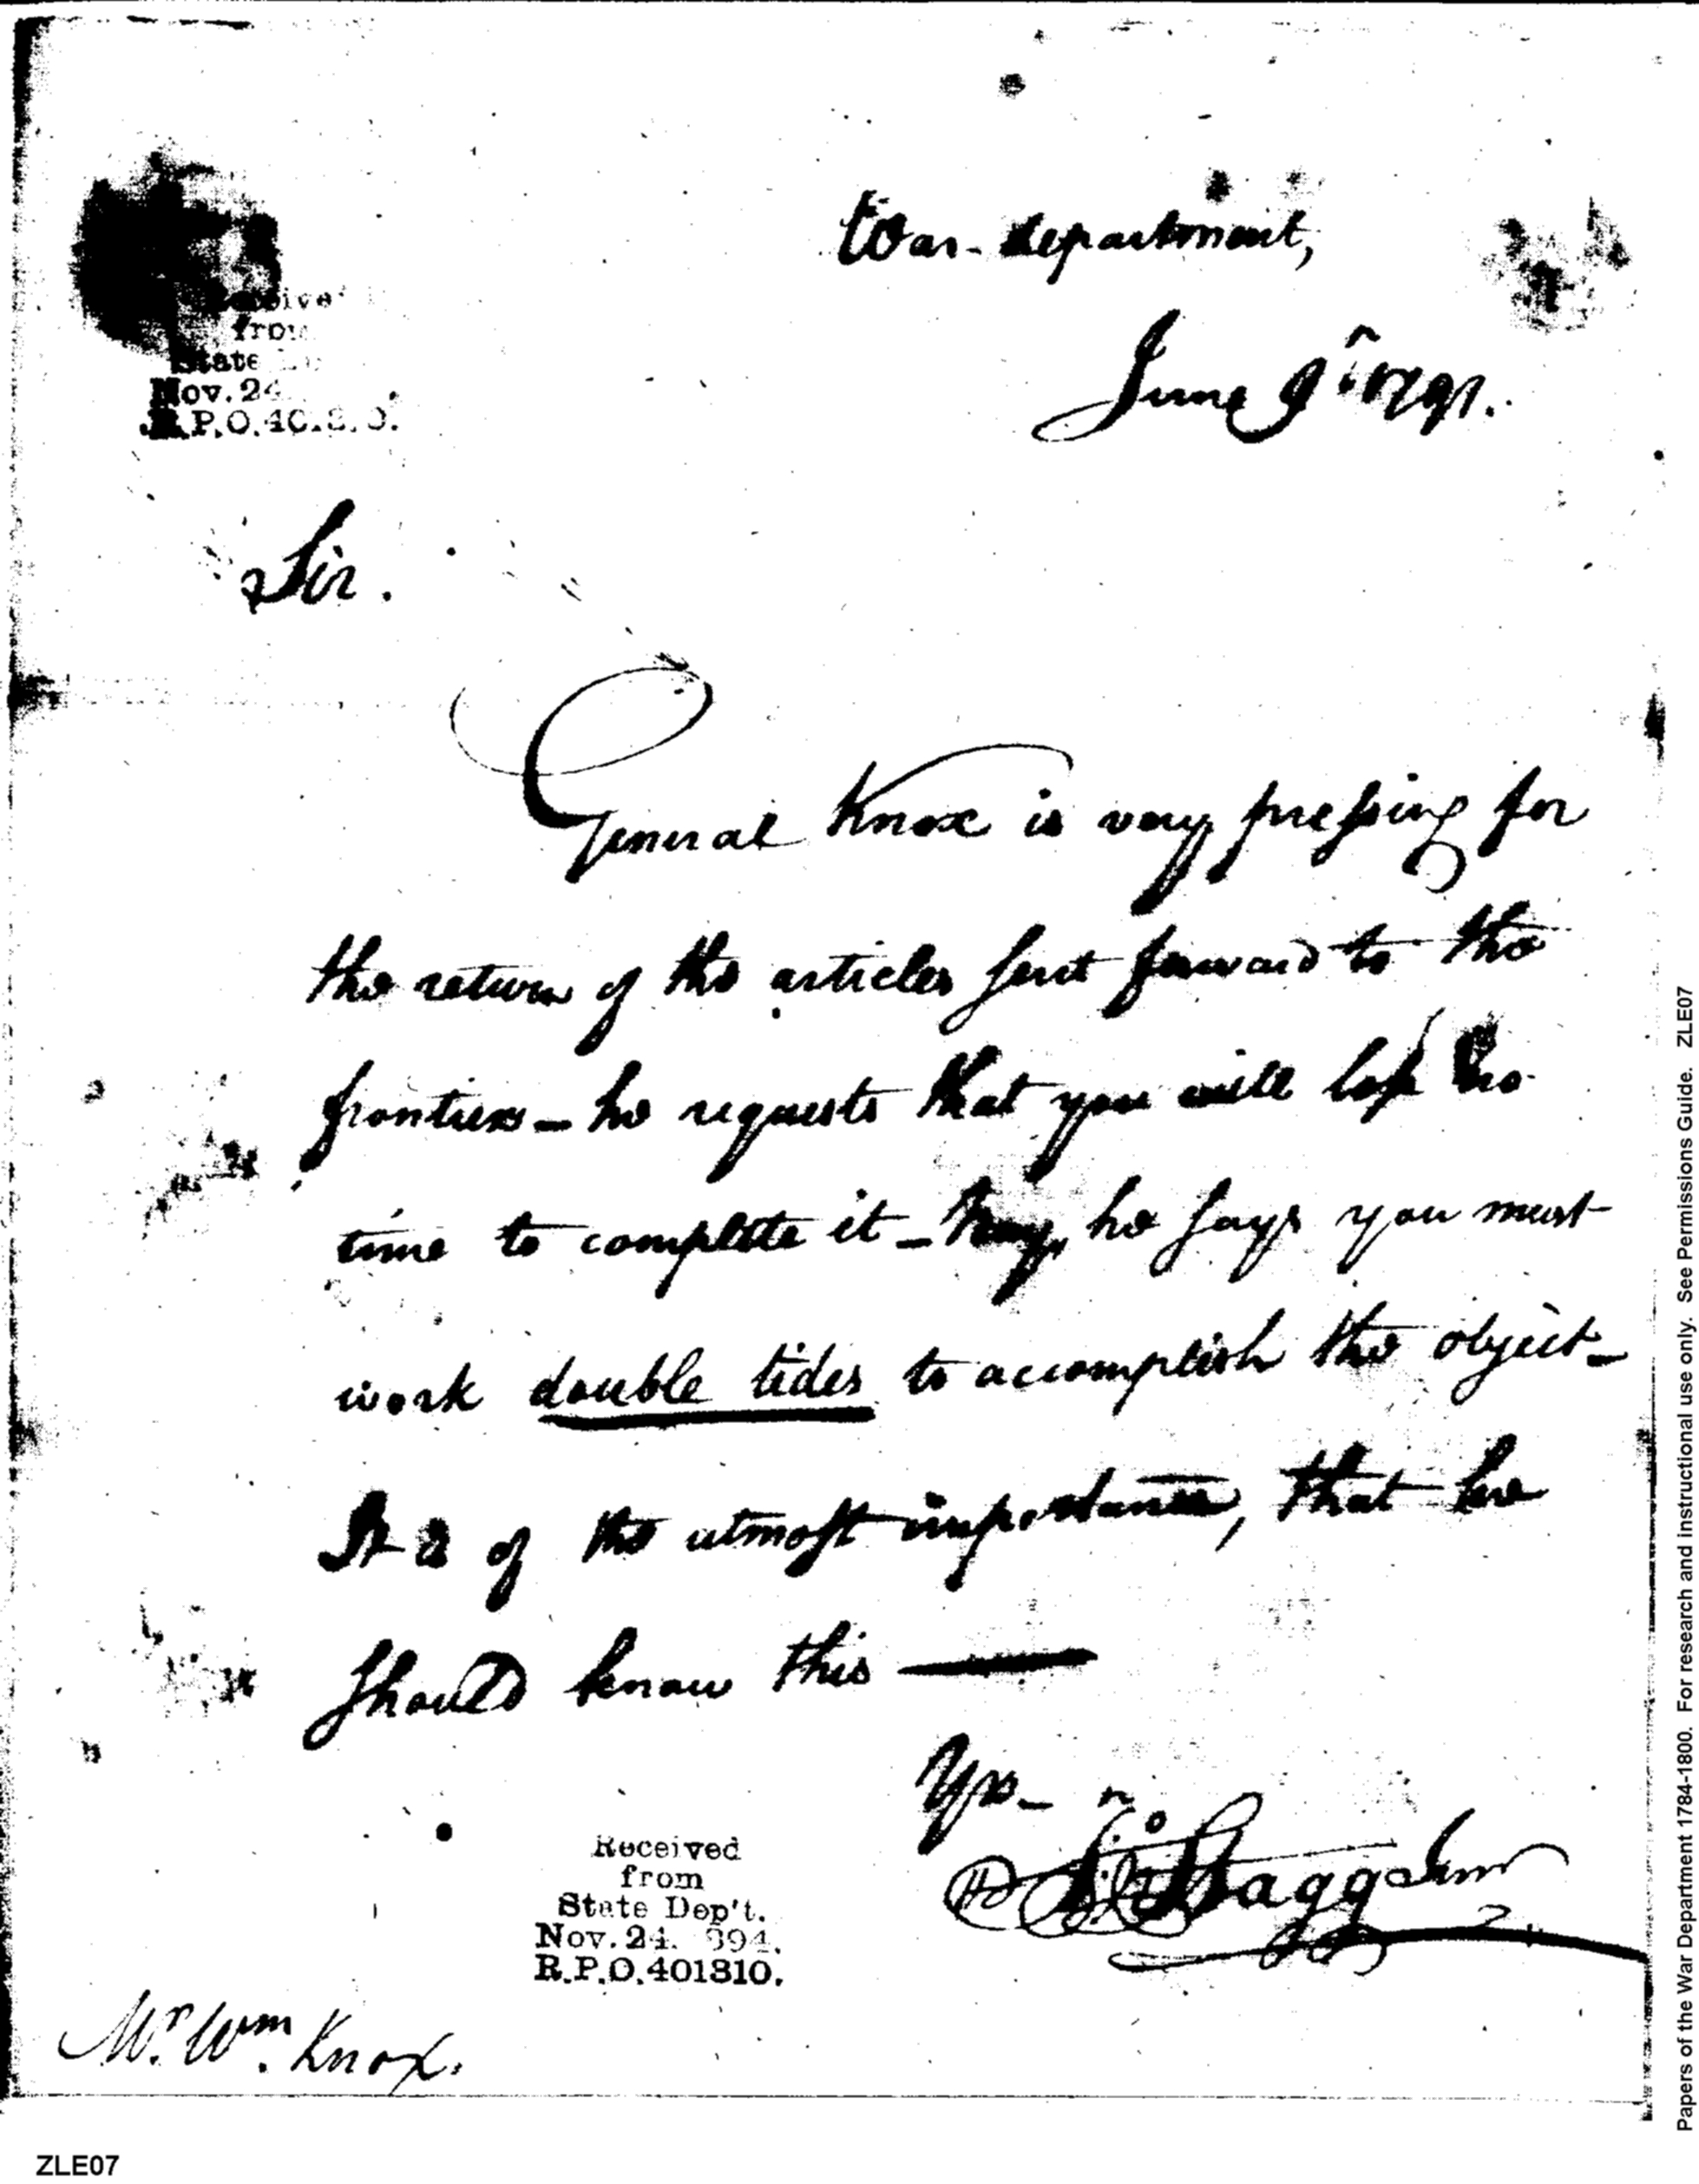 War-department,
June 9th 1791.
Receive
from
State
Nov. 24
R.P.O.
Sir.
General Knox is very preſsing for
the return of the articles ſent forward to the
frontiers – he requests that you will loſe no
time to complete it – Nay, he ſays you must
work double tides to accomplish the object –
It is of the utmoſt importance, that he
ſhould know this —
Yrs –
Jno Stagg Junr
Received
from
State Dep't.
Nov. 24. 894.
R.P.O. 401310.
Mr. Wm. Knox.
ZLE07
Papers of the War Department 1784-1800. For research and instructional use only. See Permissions Guide. ZLE07